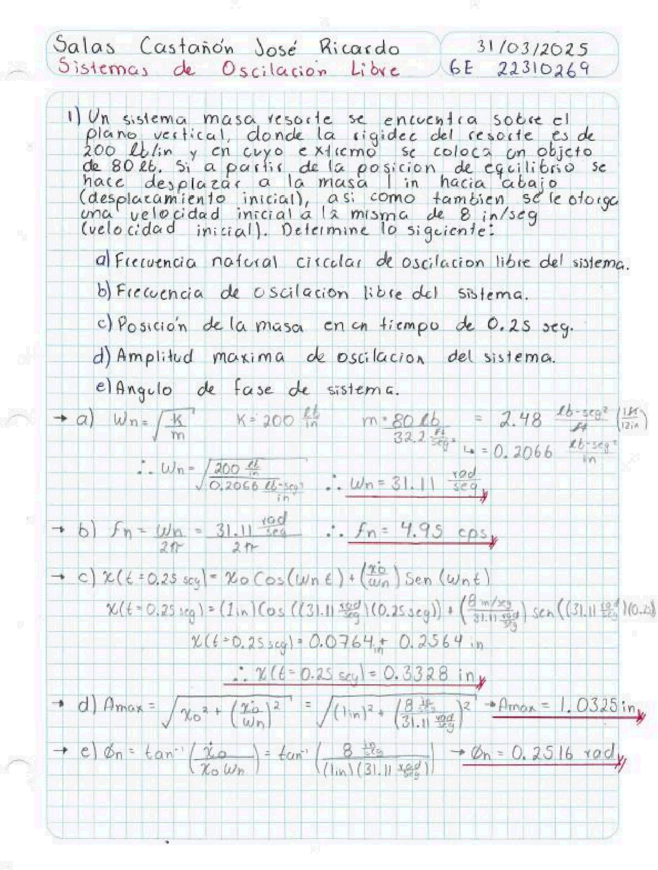 Salas Castañón José Ricardo 31/03/2025
Sistemas de Oscilación Libre 6E 22310269
1) Un sistema masa resorte se encuentra sobre el
plano vertical, donde la rigidez del resorte es de
200 lb/in y en cuyo extremo se coloca un objeto
de 80 lb. Si a partir de la posicion de equilibrio se
hace desplazar a la masa 1 in hacia abajo
(desplazamiento inicial), asi como tambien, se le otorga
una velocidad inicial a la misma de 8 in/seg
(velocidad inicial). Determine lo siguiente:
a) Frecuencia natural circular de oscilacion libre del sistema.
b) Frecuencia de oscilacion libre del sistema.
c) Posición de la masa en un tiempo de 0.25 seg.
d) Amplitud maxima de oscilacion del sistema.
e) Angulo de fase de sistema.
→ a) Wn = √(K/m) K = 200 lb/in m = 80 lb / 32.2 ft/seg² = 2.48 lb-seg²/ft (1ft/12in)
↳ = 0.2066 lb-seg²/in
∴ Wn = √(200 lb/in / 0.2066 lb-seg²/in) ∴ Wn = 31.11 rad/seg
→ b) fn = Wn/2π = 31.11 rad/seg / 2π ∴ fn = 4.95 cps
→ c) x(t=0.25 seg) = x₀ Cos(Wn t) + (ẋ₀/Wn) Sen (Wn t)
x(t=0.25 seg) = (1in) Cos ((31.11 rad/seg)(0.25seg)) + (8 in/seg / 31.11 rad/seg) sen((31.11 rad/seg)(0.25)
x(t=0.25 seg) = 0.0764 in + 0.2564 in
∴ x(t=0.25 seg) = 0.3328 in
→ d) Amax = √(x₀² + (ẋ₀/Wn)²) = √((1in)² + (8 in/seg / 31.11 rad/seg)²) → Amax = 1.0325 in
→ e) Øn = tan⁻¹ (ẋ₀ / x₀ Wn) = tan⁻¹ (8 in/seg / (1in)(31.11 rad/seg)) → Øn = 0.2516 rad